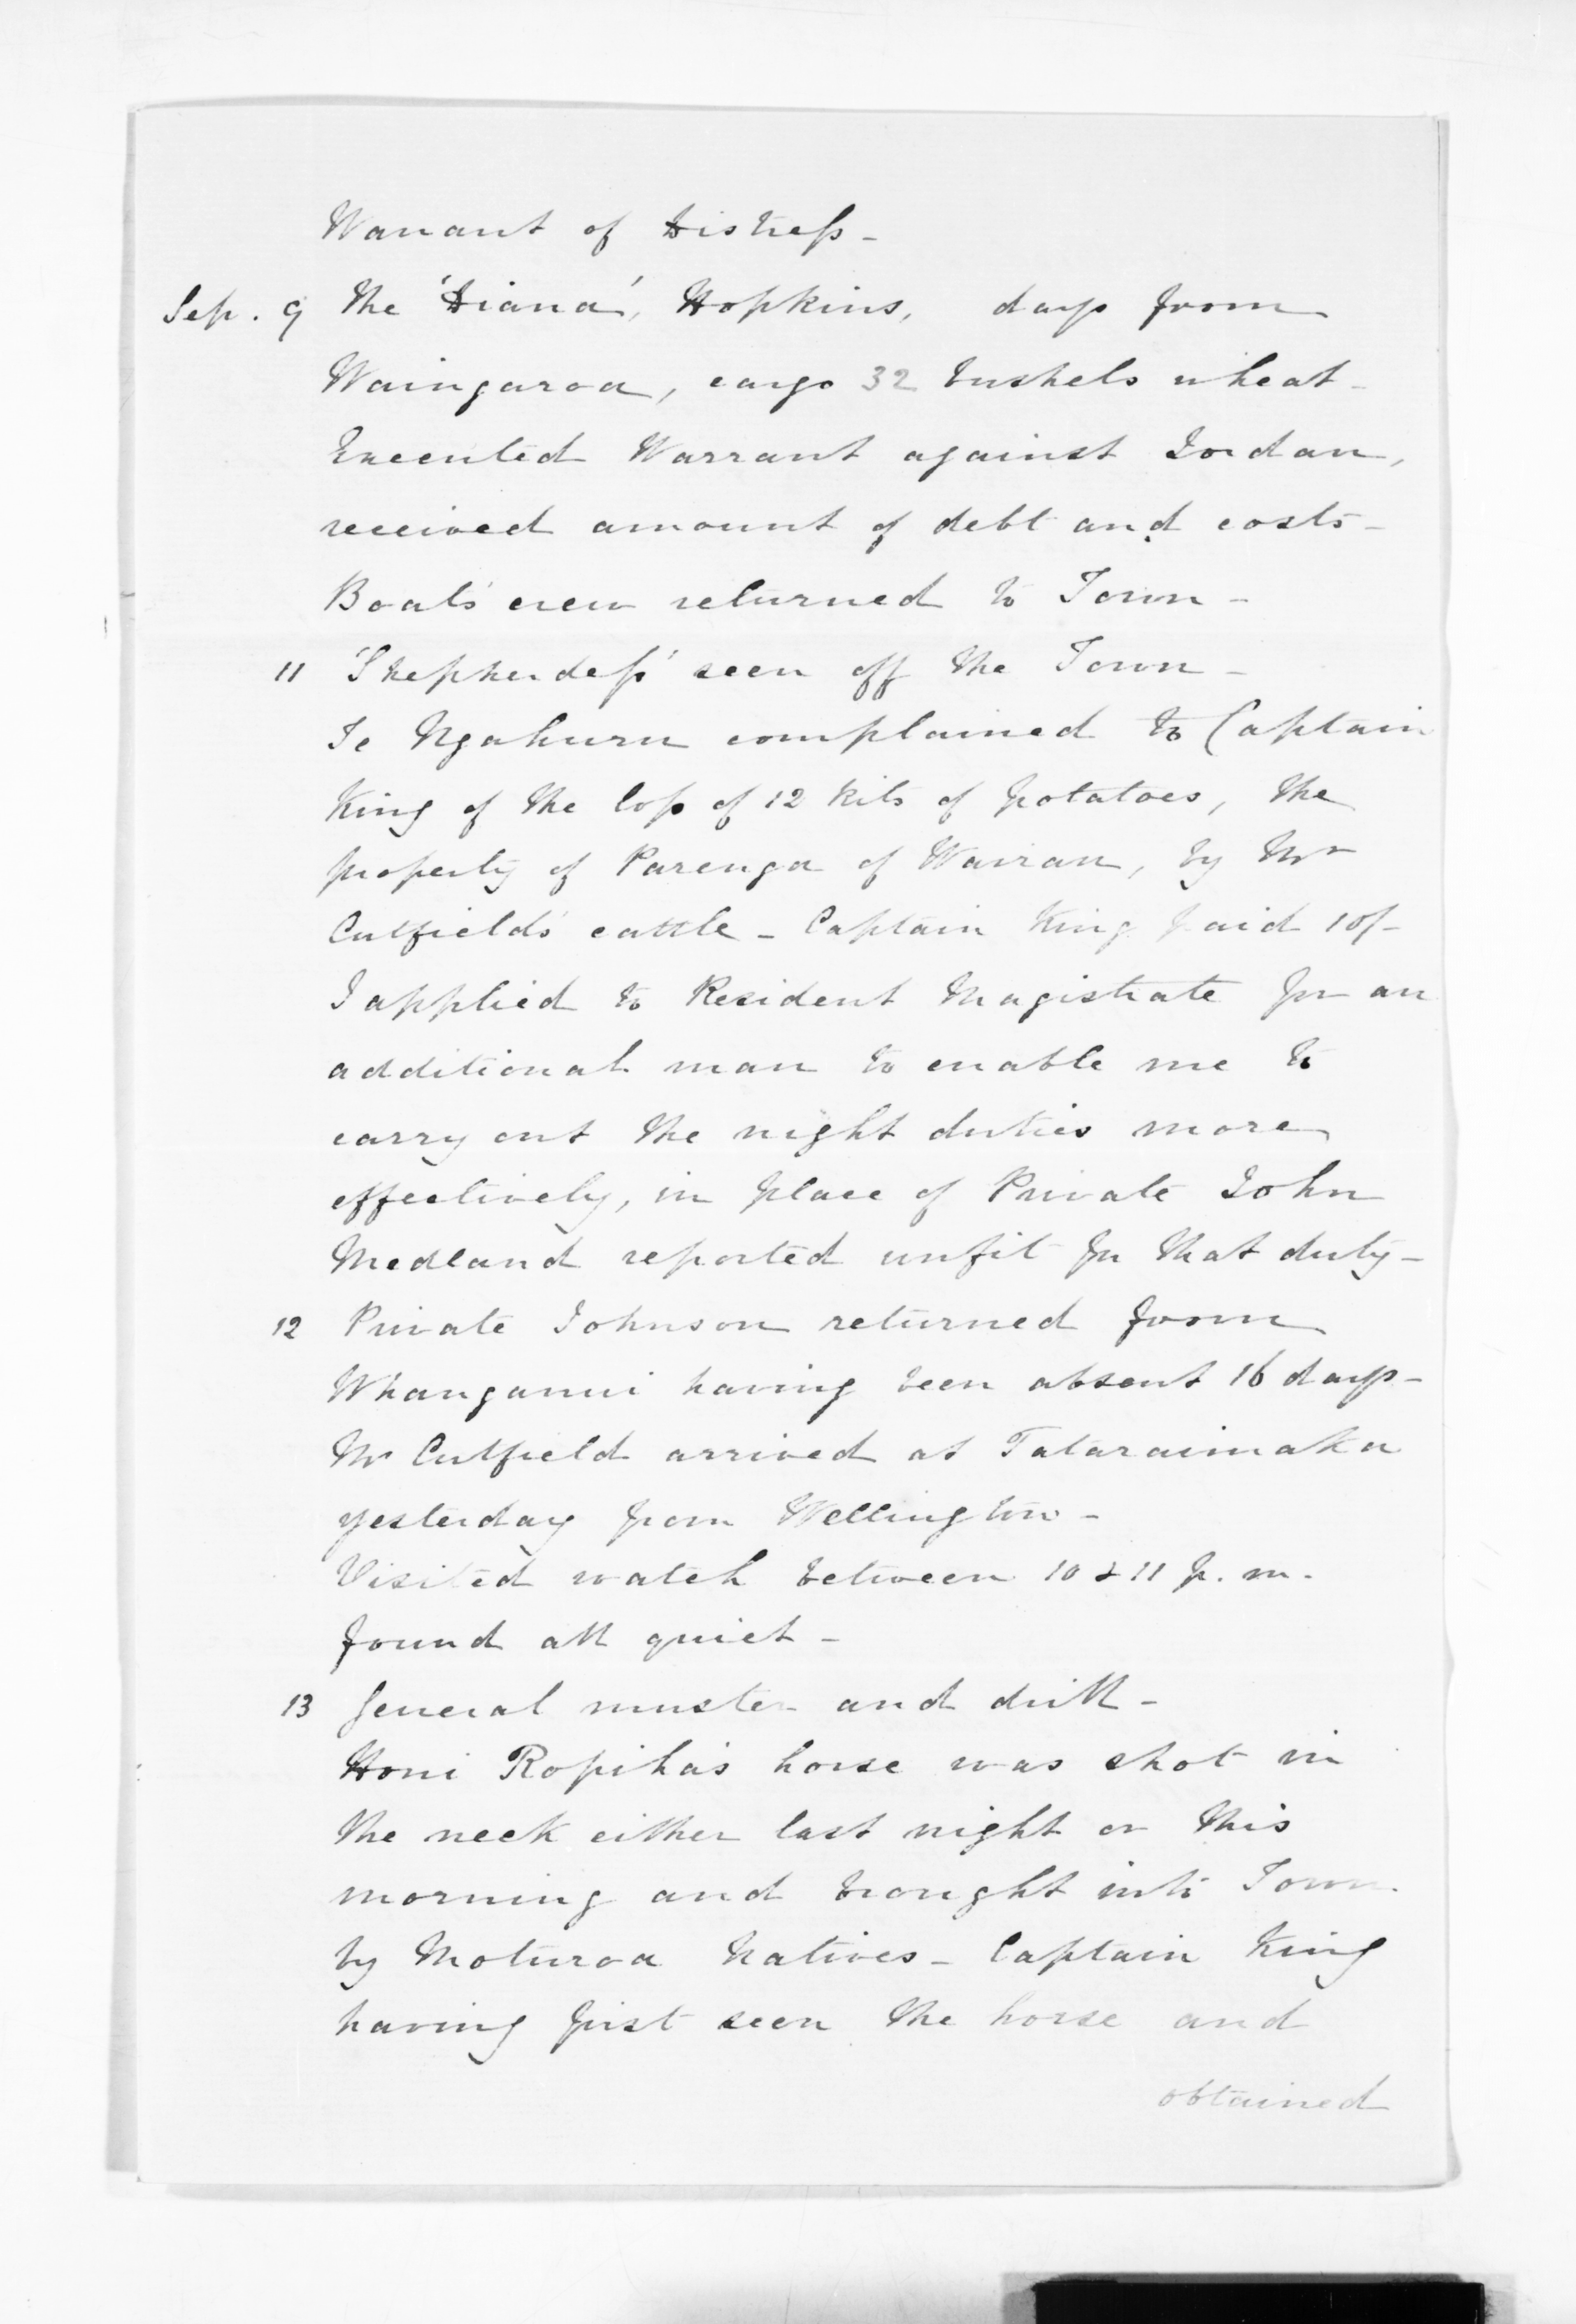 Warrant of Distress -
Sep. 9 The 'Diana', Hopkins, days from
Waingaroa, cargo 32 bushels wheat -
Executed Warrant against Jordan,
received amount of debt and costs -
Boat's crew returned to Town -
11 'Shepherdess' seen off the Town -
Te Ngahuru complained to Captain
King of the loss of 12 kits of potatoes, the
property of Parenga of Wairau, by Mr
Cutfield's cattle - Captain King paid 10/-
I applied to Resident Magistrate for an
additional man to enable me to
carry out the night duties more
effectively, in place of Private John
Medland reported unfit for that duty -
12 Private Johnson returned from
Whanganui having been absent 16 days -
Mr Cutfield arrived at Tataraimaka
yesterday from Wellington -
Visited watch between 10 & 11 p.m.
found all quiet -
13 General muster and drill -
Honi Ropiha's horse was shot in
the neck either last night or this
morning and brought into Town
by Moturoa Natives - Captain King
having first seen the horse and
obtained